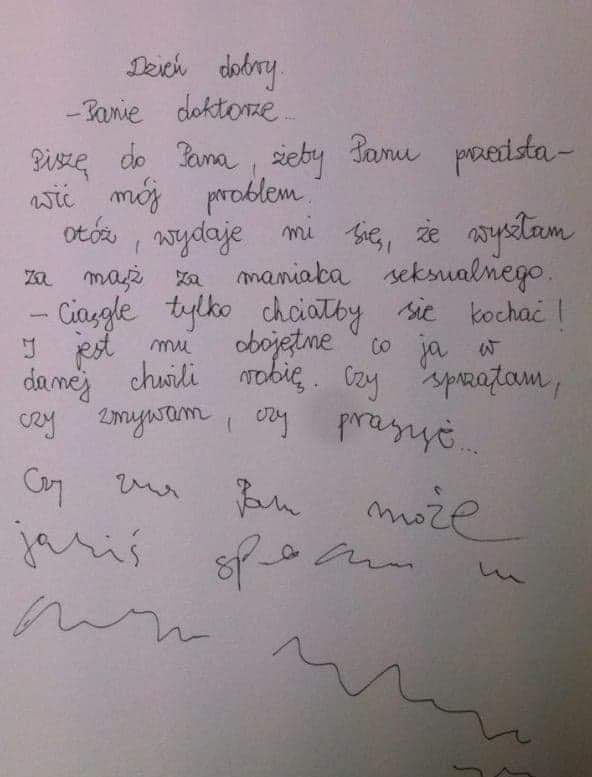 Dzień dobry.
- Panie doktorze...
Piszę do Pana, żeby Panu przedsta-
wić mój problem.
Otóż, wydaje mi się, że wyszłam
za mąż za maniaka seksualnego.
- Ciągle tylko chciałby się kochać!
I jest mu obojętne co ja w
danej chwili robię. Czy sprzątam,
czy zmywam, czy prasuję...
Czy zna Pan może
jakiś